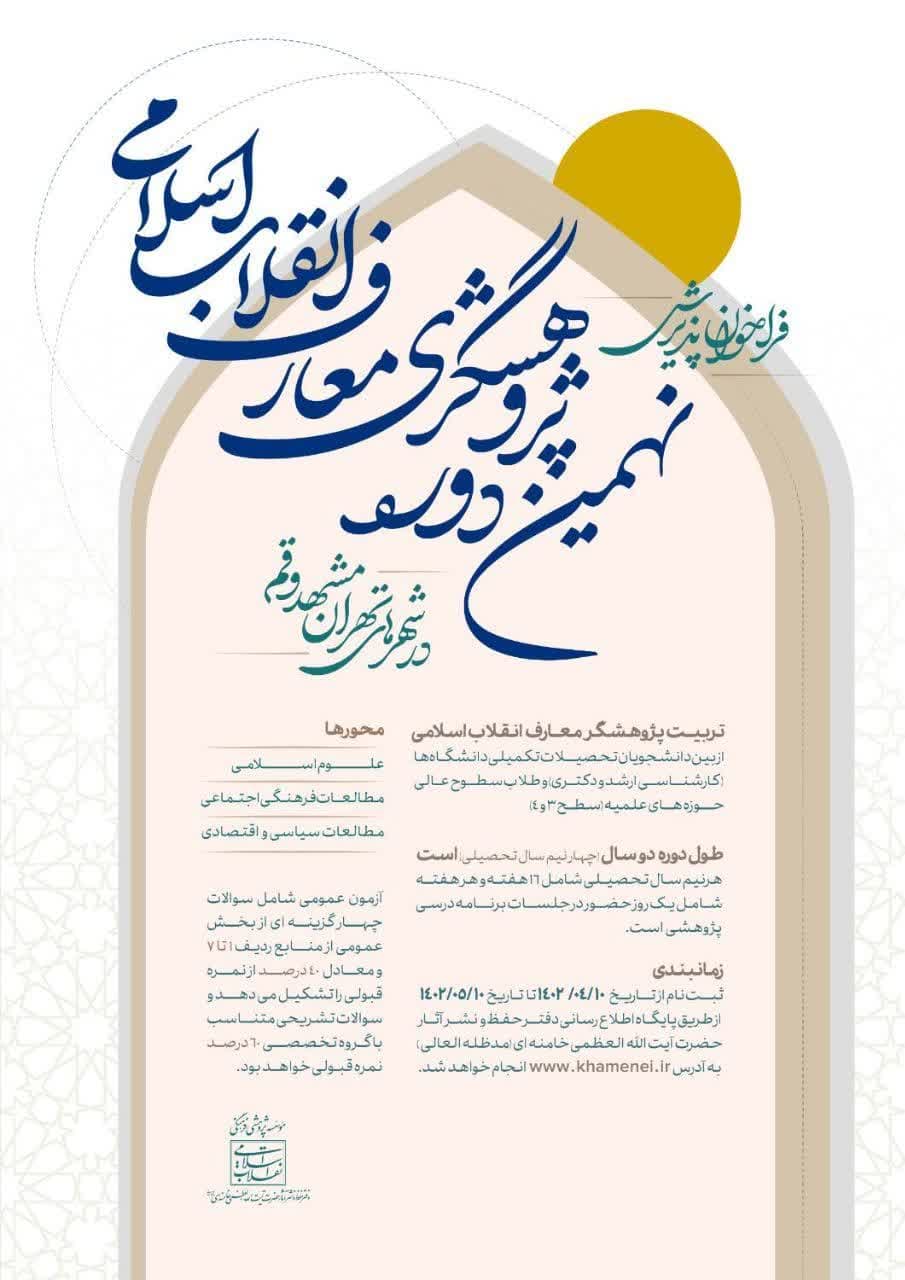 فراخوان پذیرش
نهمین دوره
پژوهشگری
معارف
انقلاب اسلامی
در شهرهای تهران
مشهد و قم
تربیت پژوهشگر معارف انقلاب اسلامی
از بین دانشجویان تحصیلات تکمیلی دانشگاه‌ها
(کارشناسی ارشد و دکتری) و طلاب سطوح عالی
حوزه های علمیه (سطح ۳ و ۴)
طول دوره دو سال (چهار نیم سال تحصیلی) است
هر نیم سال تحصیلی شامل ۱۶ هفته و هر هفته
شامل یک روز حضور در جلسات برنامه درسی
پژوهشی است.
زمانبندی
ثبت نام از تاریخ ۱۴۰۲/۰۴/۱۰ تا تاریخ ۱۴۰۲/۰۵/۱۰
از طریق پایگاه اطلاع رسانی دفتر حفظ و نشر آثار
حضرت آیت الله العظمی خامنه ای (مدظله العالی)
به آدرس www.khamenei.ir انجام خواهد شد.
محورها
علوم اسلامی
مطالعات فرهنگی اجتماعی
مطالعات سیاسی و اقتصادی
آزمون عمومی شامل سوالات
چهار گزینه ای از بخش
عمومی از منابع ردیف ۱ تا ۷
و معادل ۴۰ درصد از نمره
قبولی را تشکیل می دهد و
سوالات تشریحی متناسب
با گروه تخصصی ۶۰ درصد
نمره قبولی خواهد بود.
مؤسسه پژوهشی فرهنگی
انقلاب اسلامی
دفتر حفظ و نشر آثار حضرت آیت الله العظمی خامنه ای